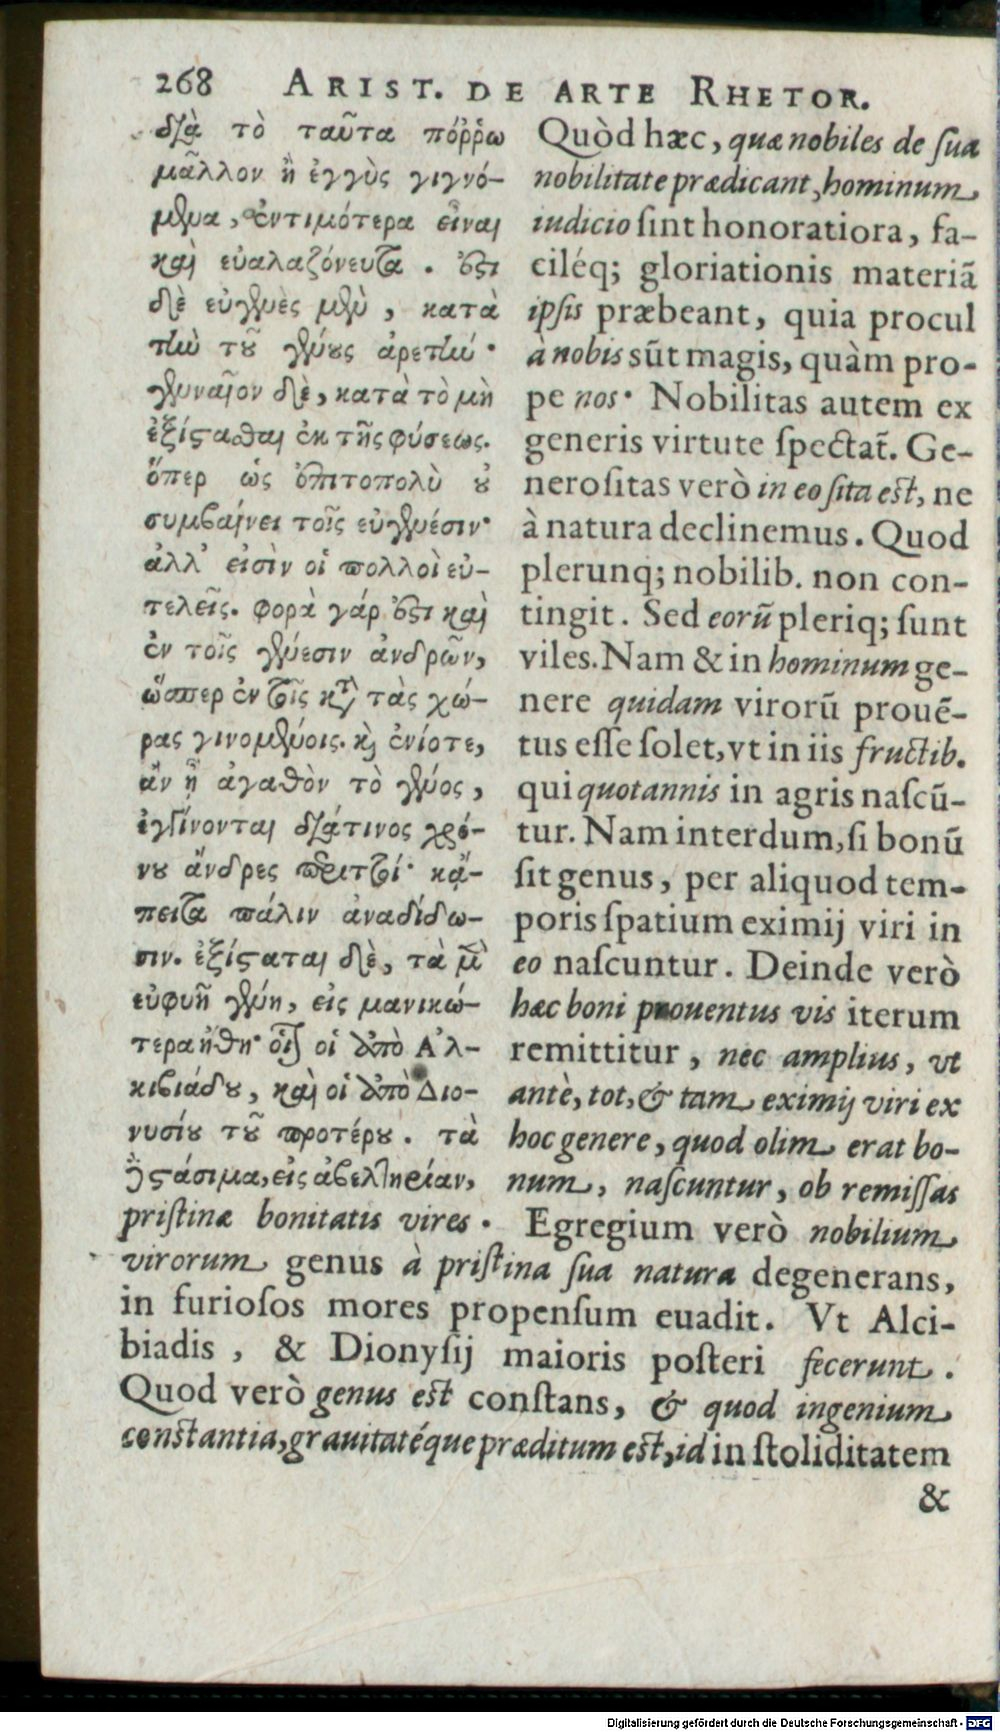 268 ARIST. DE ARTE RHETOR.
διὰ τὸ ταῦτα πόῤῥω
μᾶλλον ἢ ἐγγὺς γιγνό-
μενα, ἐντιμότερα εἶναι
καὶ εὐαλαζόνευτα. ἔστι
δὲ εὐγενὲς μὲν, κατὰ
τὴν τοῦ γένους ἀρετήν·
γενναῖον δὲ, κατὰ τὸ μὴ
ἐξίστασθαι ἐκ τῆς φύσεως.
ὅπερ ὡς ἐπιτοπολὺ οὐ
συμβαίνει τοῖς εὐγενέσιν·
ἀλλ' εἰσὶν οἱ πολλοὶ εὐ-
τελεῖς. φορὰ γάρ ἐστι καὶ
ἐν τοῖς γένεσιν ἀνδρῶν,
ὥσπερ ἐν τοῖς κατὰ τὰς χώ-
ρας γινομένοις. καὶ ἐνίοτε,
ἂν ᾖ ἀγαθὸν τὸ γένος,
ἐγγίνονται διάτινος χρό-
νου ἄνδρες περιττοί· κἄ-
πειτα πάλιν ἀναδίδω-
σιν. ἐξίσταται δὲ, τὰ μὲν
εὐφυῆ γένη, εἰς μανικώ-
τερα ἤθη· οἷον οἱ ἀπὸ Ἀλ-
κιβιάδου, καὶ οἱ ἀπὸ Διο-
νυσίου τοῦ προτέρου. τὰ
δὲ στάσιμα, εἰς ἀβελτηρίαν,
Quòd hæc, quæ nobiles de ſua
nobilitate prædicant, hominum
iudicio ſint honoratiora, fa-
ciléq; gloriationis materiã
ipſis præbeant, quia procul
à nobis sũt magis, quàm pro-
pe nos· Nobilitas autem ex
generis virtute ſpectat̃. Ge-
neroſitas verò in eo ſita eſt, ne
à natura declinemus. Quod
plerunq; nobilib. non con-
tingit. Sed eorũ pleriq; ſunt
viles. Nam & in hominum ge-
nere quidam virorũ prouẽ-
tus eſſe ſolet, vt in iis fructib.
qui quotannis in agris naſcũ-
tur. Nam interdum, ſi bonũ
ſit genus, per aliquod tem-
poris ſpatium eximij viri in
eo naſcuntur. Deinde verò
hæc boni prouentus vis iterum
remittitur, nec amplius, vt
antè, tot, & tam eximij viri ex
hoc genere, quod olim erat bo-
num, naſcuntur, ob remiſſas
priſtinæ bonitatis vires. Egregium verò nobilium
virorum genus à priſtina ſua natura degenerans,
in furioſos mores propenſum euadit. Vt Alci-
biadis, & Dionyſij maioris poſteri fecerunt.
Quod verò genus eſt conſtans, & quod ingenium
conſtantia, grauitatéque præditum eſt, id in ſtoliditatem
&
Digitalisierung gefördert durch die Deutsche Forschungsgemeinschaft - DFG